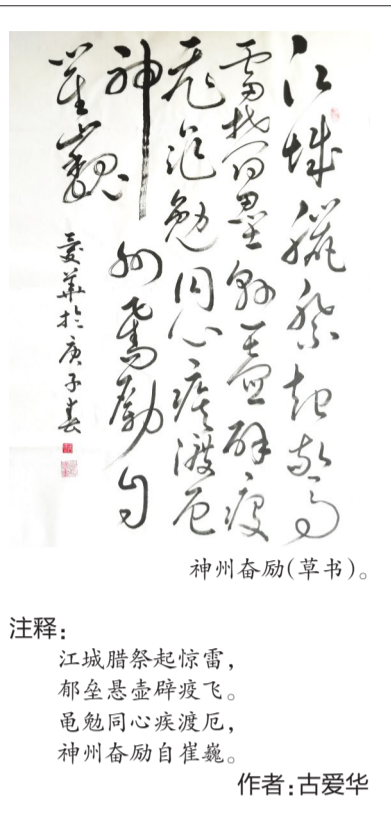 江城臘祭起驚
雷鬱壘懸壺辟疫
飛黽勉同心疾渡厄
神州奮勵自
崔巍
愛華於庚子春
神州奋励(草书)。
注释：
江城腊祭起惊雷，
郁垒悬壶辟疫飞。
黾勉同心疾渡厄，
神州奋励自崔巍。
作者：古爱华